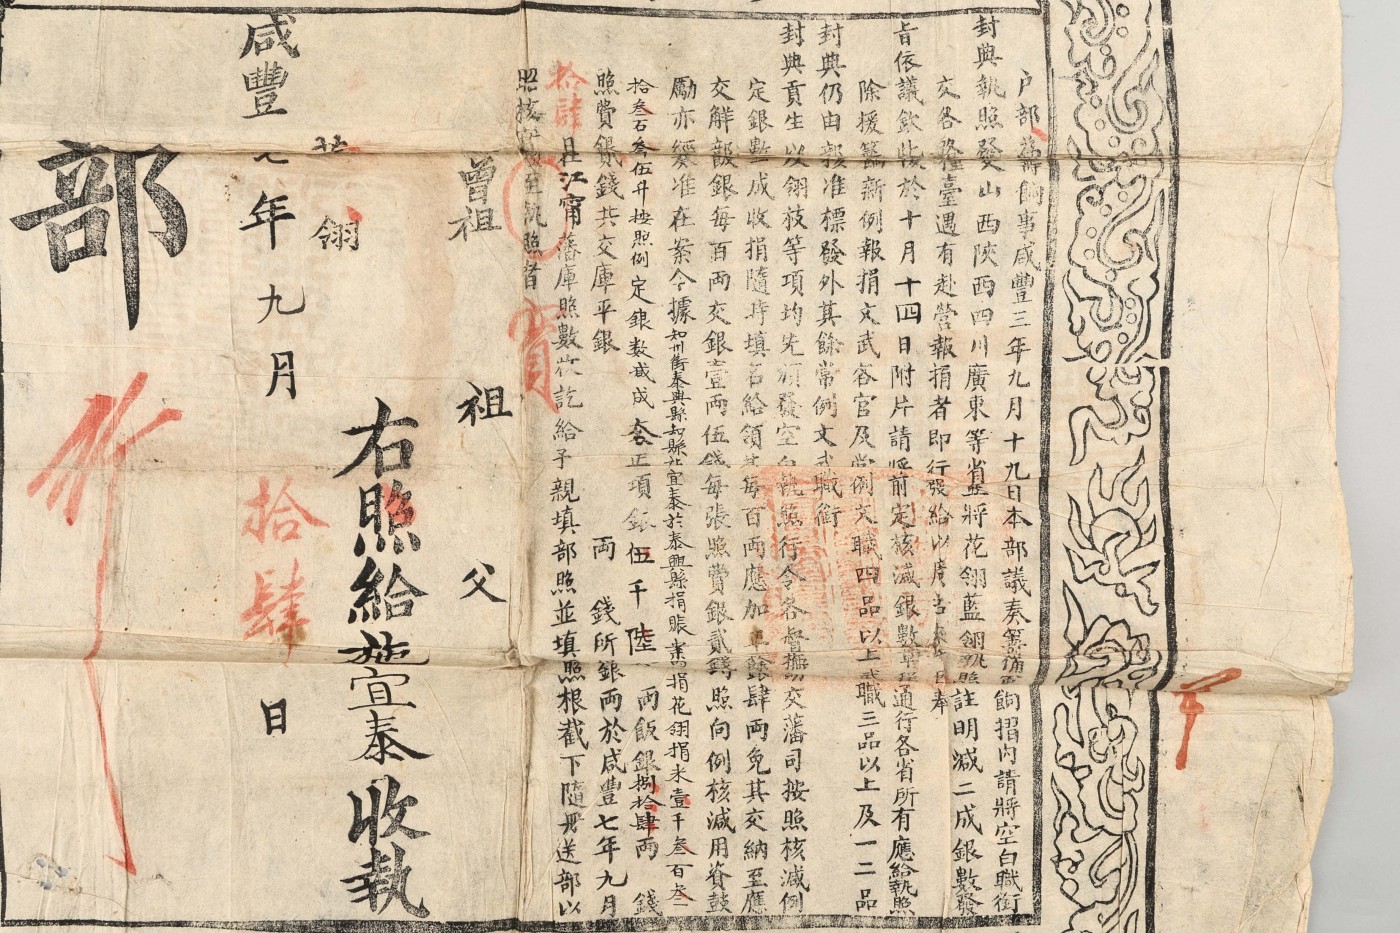 户部籌餉事咸豐三年九月十九日本部議奏籌備軍餉摺內請將空白職銜
封典執照發山西陝西四川廣東等省並將花翎藍翎執照註明減二成銀數發
交各糧臺遇有赴營報捐者即行發給以廣
旨依議欽此於十月十四日附片請將前定核減銀數章程通行各省所有應給執照
除援籌新例報捐文武各官及常例文職四品以上武職三品以上及一二品
封典仍由部准標發外其餘常例文武職銜
封典貢生以翎枝等項均先頒發空白執照行令各督撫劻交藩司按照核減例
定銀數成收捐隨時填名給領其每百兩應加平餘肆兩免其交納至應
交解部銀每百兩交銀壹兩伍錢每張照費銀貳錢照向例核減用資鼓
勵亦經准在案今據知州銜泰興縣知縣許宜泰於泰興縣捐賑案內捐花翎捐米壹千叁百叁
拾叁石叁伍升按照例定銀數減成交正項銀伍千陸 兩飯銀捌拾肆兩 錢
照費銀錢共交庫平銀 兩 錢所銀兩於咸豐七年九月
拾肆日江甯藩庫照數收訖給予親填部照並填照根截下隨冊送部以
照核 至執照者
實
曾祖
祖
父
右照給 宜泰收執
翎
咸豐七年九月拾肆日
部
行